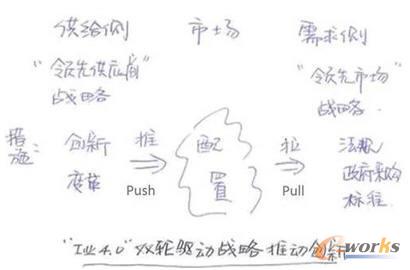 供给侧 市场 需求侧
"领先供应商" "领先市场"
战略 战略
措施: 创新 推 配 拉 法规
变革 Push 置 Pull 政府采购
标准
"工业4.0"双轮驱动战略推动创新
e-works